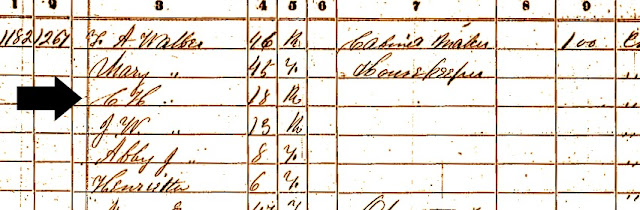 1 2 3 4 5 6 7 8 9
1182 1267 F A Walker 46 M Cabinet Maker 100
Mary " 45 F Housekeeper
C H " 18 M
J. W. " 13 M
Abby J " 8 F
Henrietta 6 F